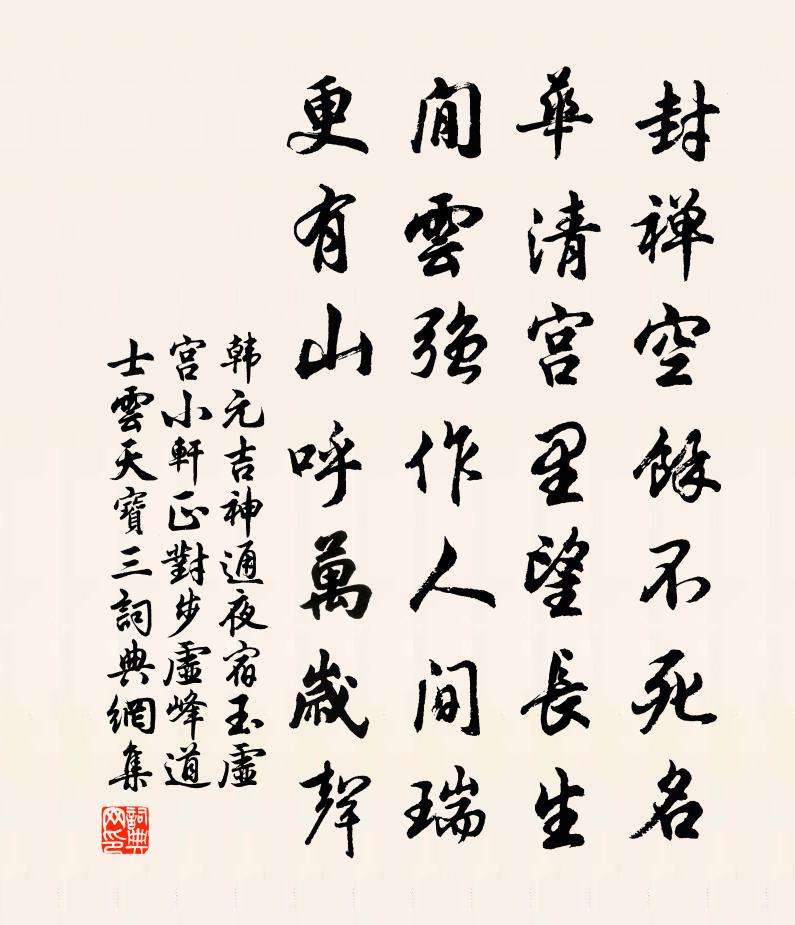 封禅空餘不死名
華清宫里望長生
閒雲强作人間瑞
更有山呼萬歲聲
韩元吉神通夜宿玉虛
宫小軒正對步虛峰道
士雲天寶三詞典網集
詞典網印